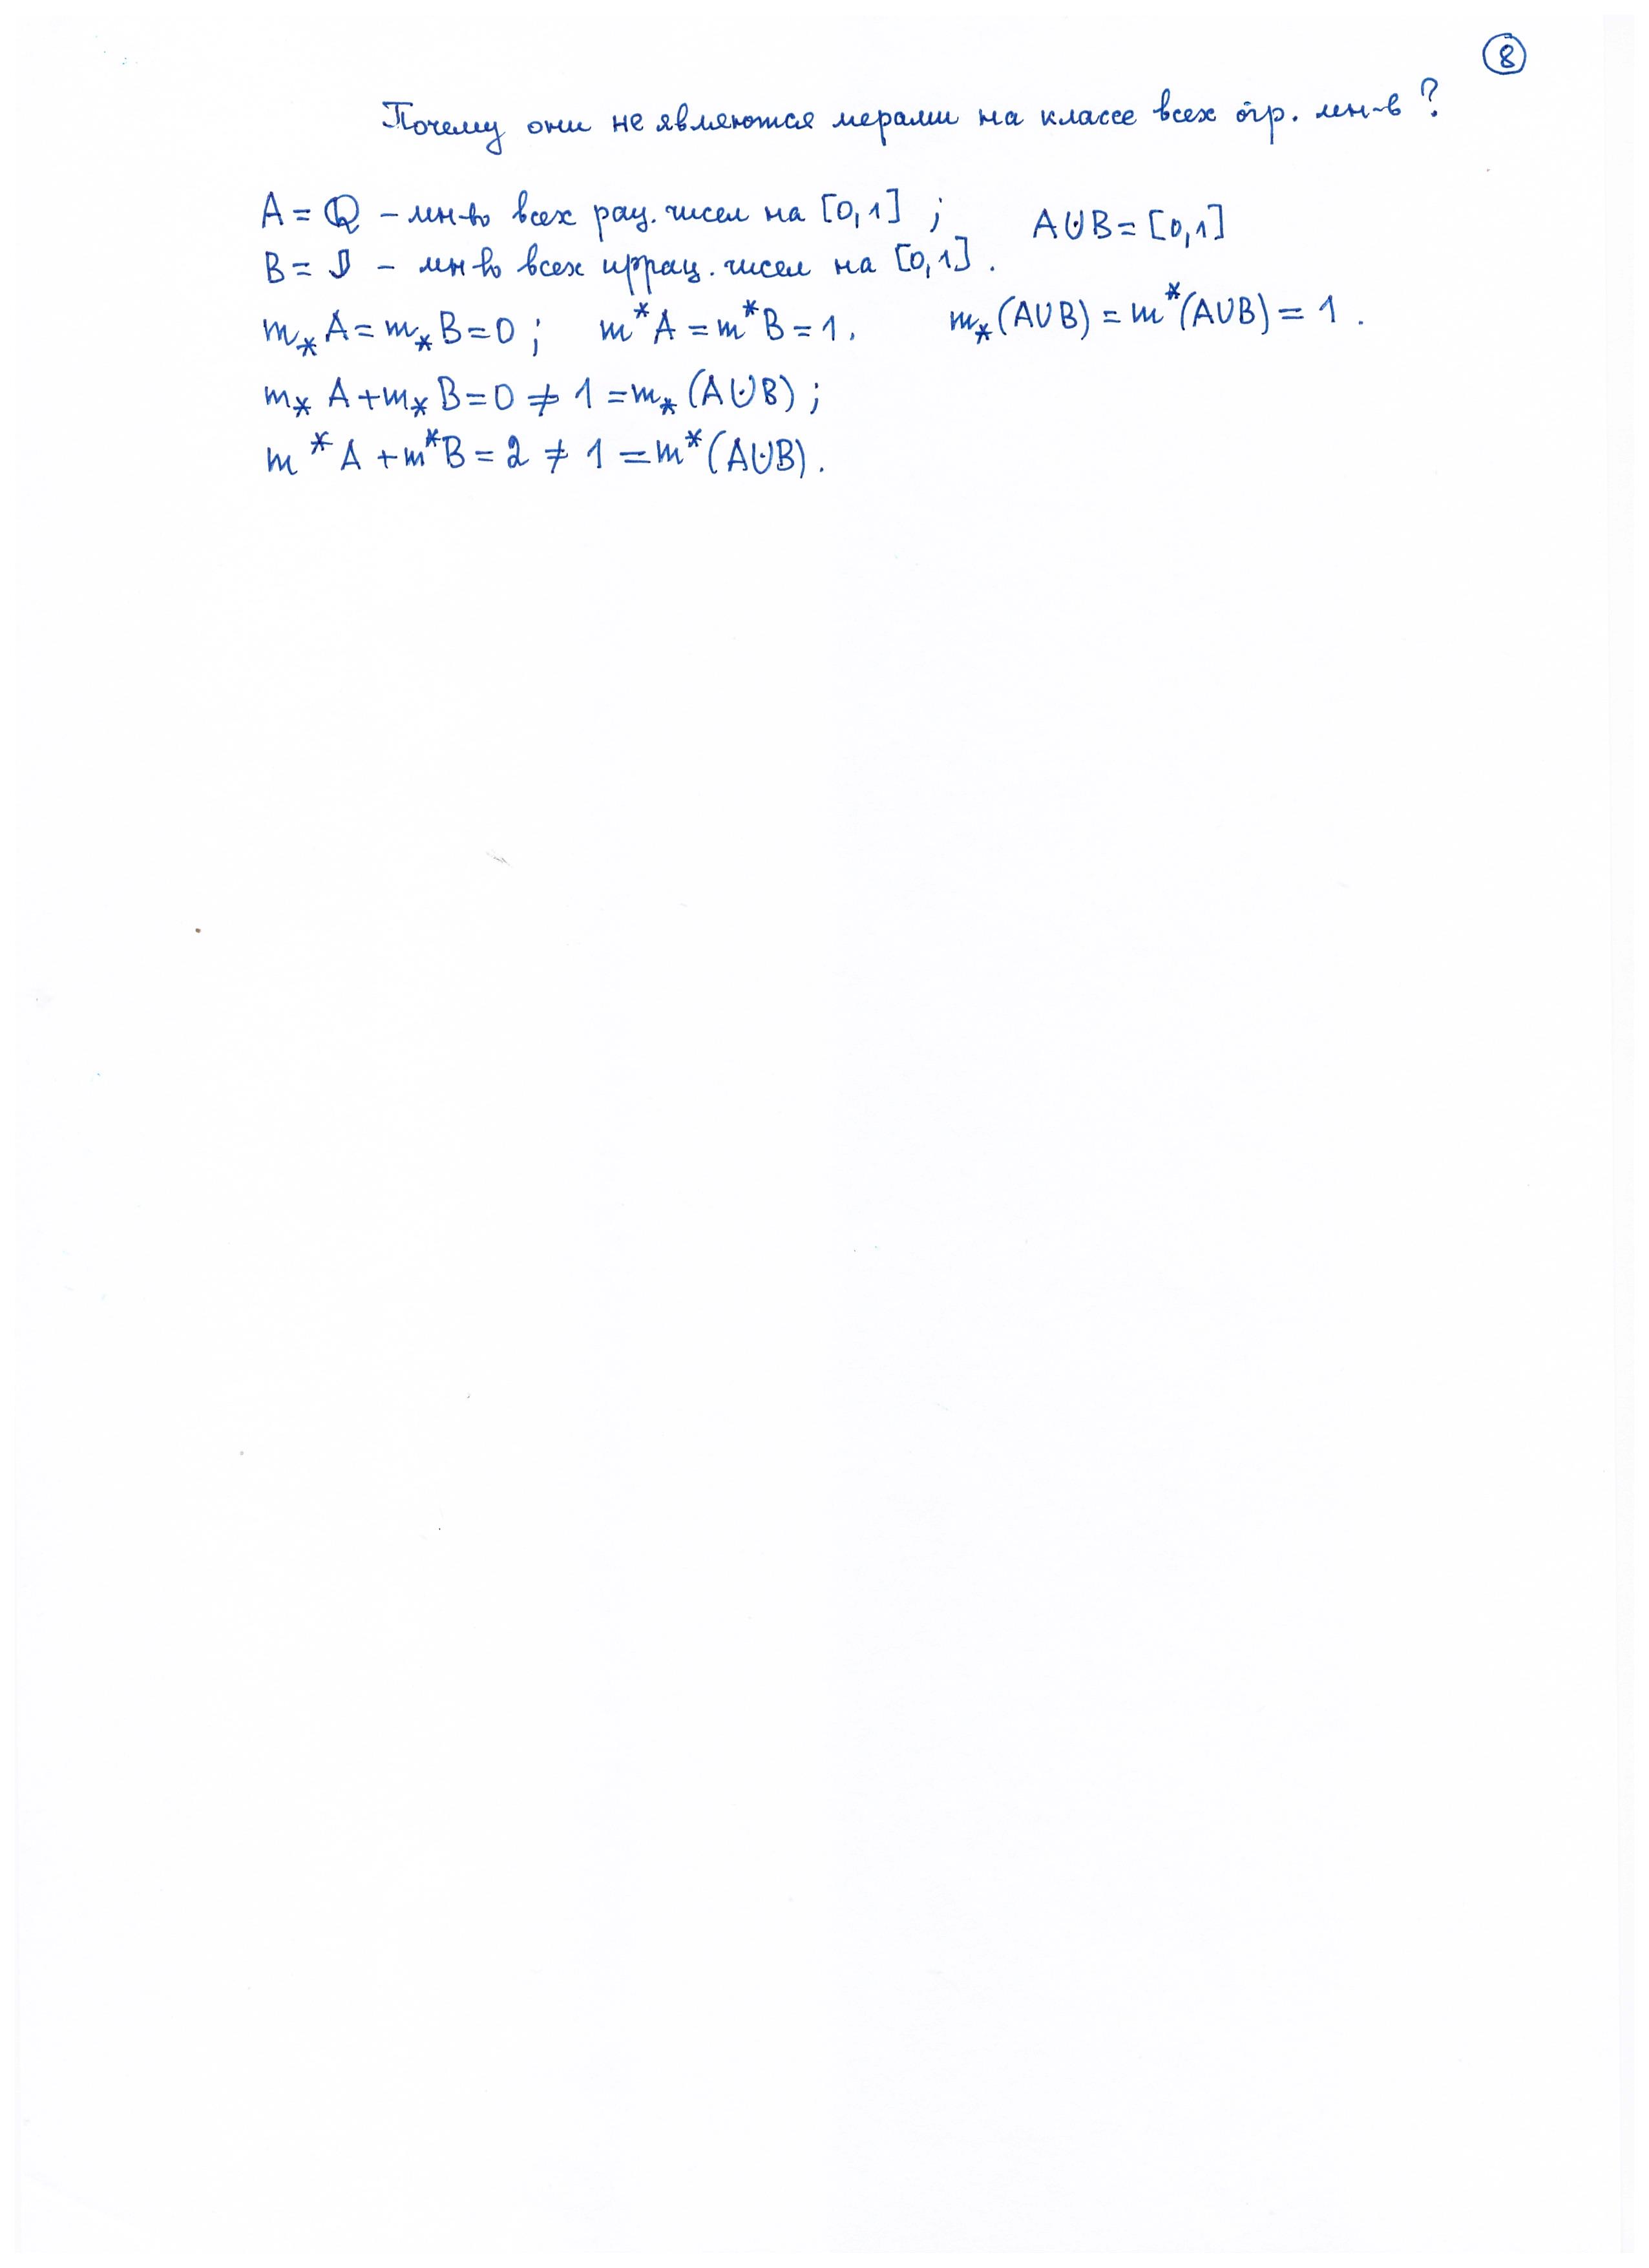 8
Почему они не являются мерами на классе всех огр. мн-в?
A = ℚ – мн-во всех рац. чисел на [0,1] ; A⊍B = [0,1]
B = 𝕁 – мн-во всех иррац. чисел на [0,1] .
m_* A = m_* B = 0 ; m^* A = m^* B = 1 . m_* (A∪B) = m^* (A∪B) = 1 .
m_* A + m_* B = 0 ≠ 1 = m_* (A⊍B) ;
m^* A + m^* B = 2 ≠ 1 = m^* (A⊍B) .